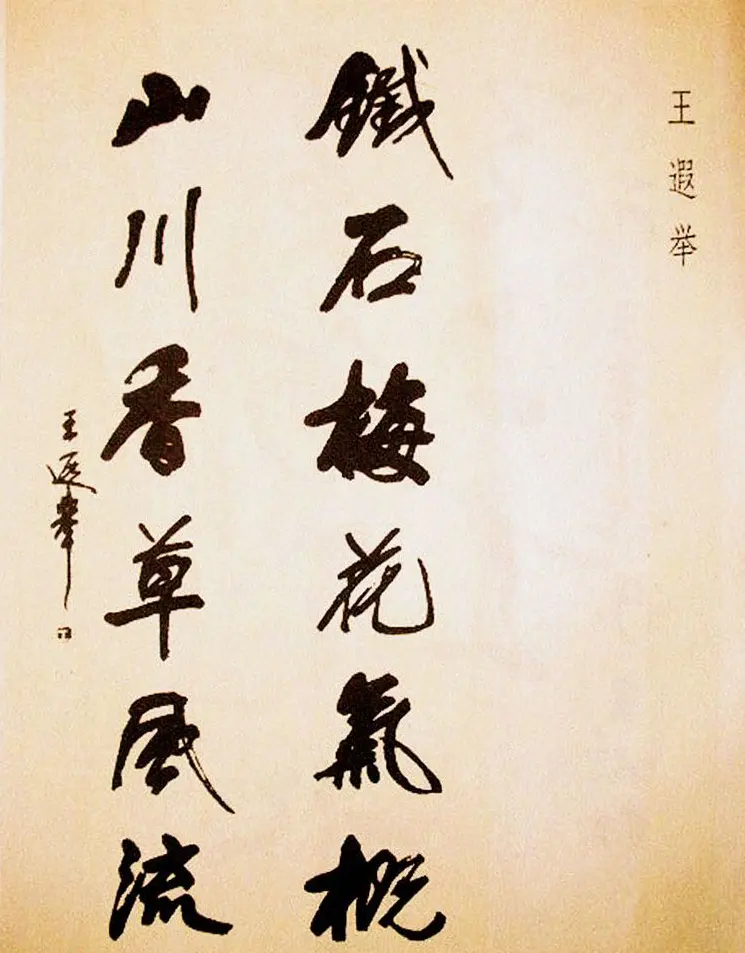 王遐举
鐵石梅花氣概
山川香草風流
王遐舉